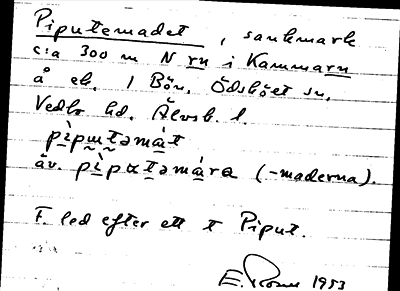 Piputemadet, sankmark
c:a 300 m N rn i Kammarn
å eb. 1 Bön, Ödsköet sn,
Vedbo hd. Älvsb. l.
pìpɯtəmát
äv. pìpɑtəmára (-maderna).
F. led efter ett t Piput.
1953